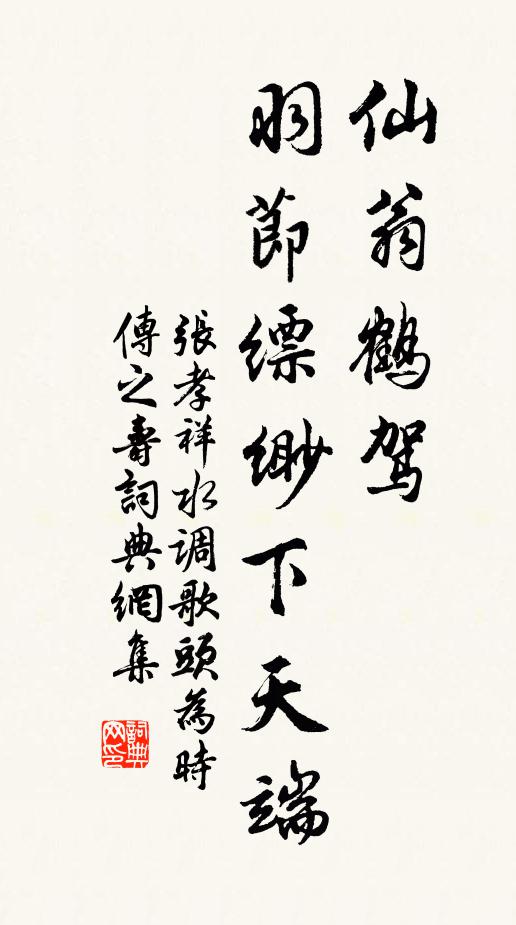 仙翁鶴駕
羽節縹緲下天端
張孝祥水調歌頭為時
傳之壽詞典網集
詞典網印